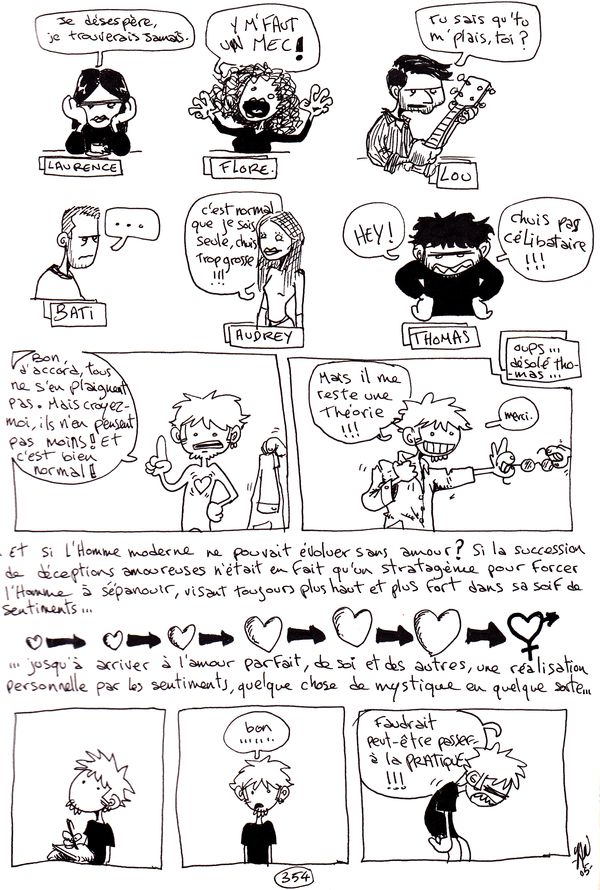 Je désespère,
je trouverais jamais.
LAURENCE
Y M'FAUT
UN MEC!
FLORE.
Tu sais qu'tu
m'plais, toi?
LOU
...
BATI
c'est normal
que je sois
seule, chuis
trop grosse
!!!
AUDREY
HEY!
chuis pas
céLibataire
!!!
THOMAS
oups...
désolé tho-
mas...
Bon,
d'accord, tous
ne s'en plaignent
pas. Mais croyez-
moi, ils n'en pensent
pas moins! Et
c'est bien
normal!
Mais il me
reste une
Théorie
!!!
merci.
Et si l'Homme moderne ne pouvait évoluer sans amour? Si la succession
de déceptions amoureuses n'était en fait qu'un stratagème pour forcer
l'Homme à s'épanouir, visant toujours plus haut et plus fort dans sa soif de
sentiments...
... jusqu'à arriver à l'amour parfait, de soi et des autres, une réalisation
personnelle par les sentiments, quelque chose de mystique en quelque sorte...
bon
......
Faudrait
peut-être passer
à la PRATIQUE
!!!
354
05